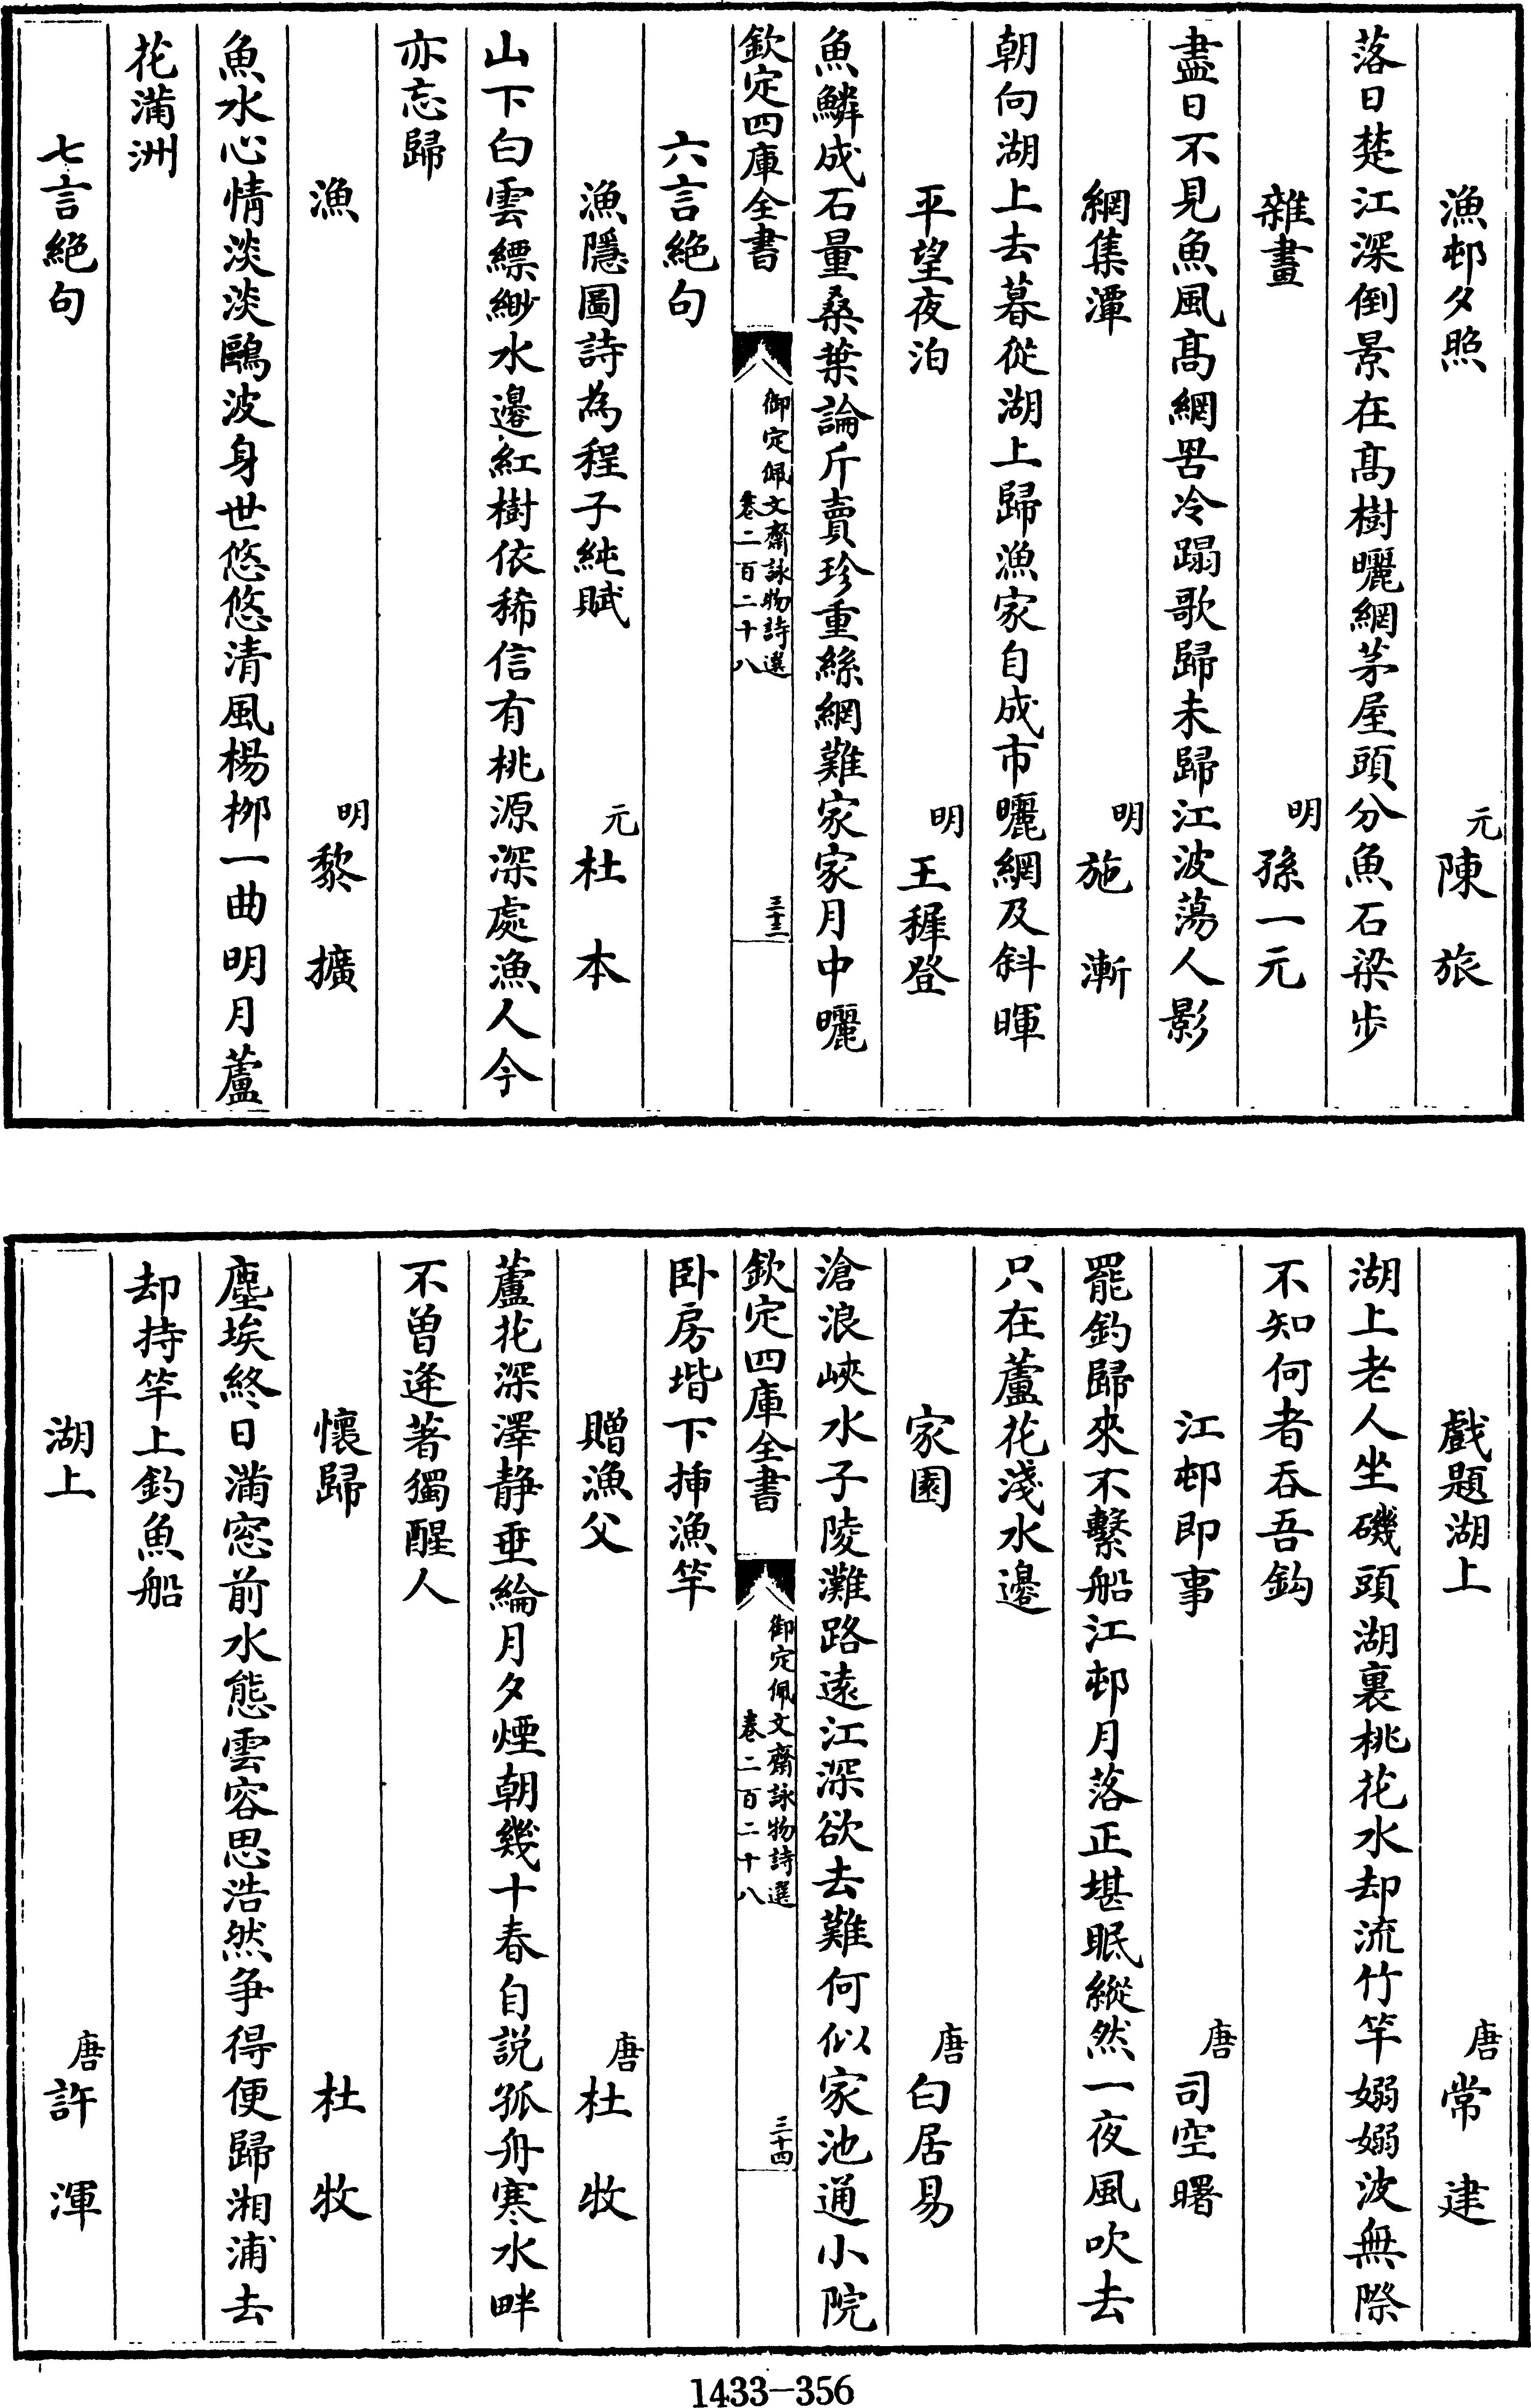 漁邨夕照　元陳旅
落日楚江深倒景在髙樹曬網茅屋頭分魚石梁步
雜畫　明孫一元
盡日不見魚風髙網罟冷蹋歌歸未歸江波蕩人影
網集潭　明施漸
朝向湖上去暮從湖上歸漁家自成市曬網及斜暉
平望夜泊　明王穉登
魚鱗成石量桑葉論斤賣珍重絲網難家家月中曬
欽定四庫全書　御定佩文齋詠物詩選　卷二百二十八　三十三
六言絶句
漁隱圖詩為程子純賦　元杜本
山下白雲縹緲水邉紅樹依稀信有桃源深處漁人今
亦忘歸
漁　明黎擴
魚水心情淡淡鷗波身世悠悠清風楊栁一曲明月蘆
花滿洲
七言絶句
戲題湖上　唐常建
湖上老人坐磯頭湖裏桃花水却流竹竿嫋嫋波無際
不知何者吞吾鈎
江邨即事　唐司空曙
罷釣歸來不繫船江邨月落正堪眠縱然一夜風吹去
只在蘆花淺水邉
家園　唐白居易
滄浪峽水子陵灘路遠江深欲去難何似家池通小院
卧房堦下揷漁竿
欽定四庫全書　御定佩文齋詠物詩選　卷二百二十八　三十四
贈漁父　唐杜牧
蘆花深澤静垂綸月夕煙朝幾十春自説孤舟寒水畔
不曽逢著獨醒人
懷歸　杜牧
塵埃終日滿窓前水態雲容思浩然争得便歸湘浦去
却持竿上釣魚船
湖上　唐許渾
1433-356